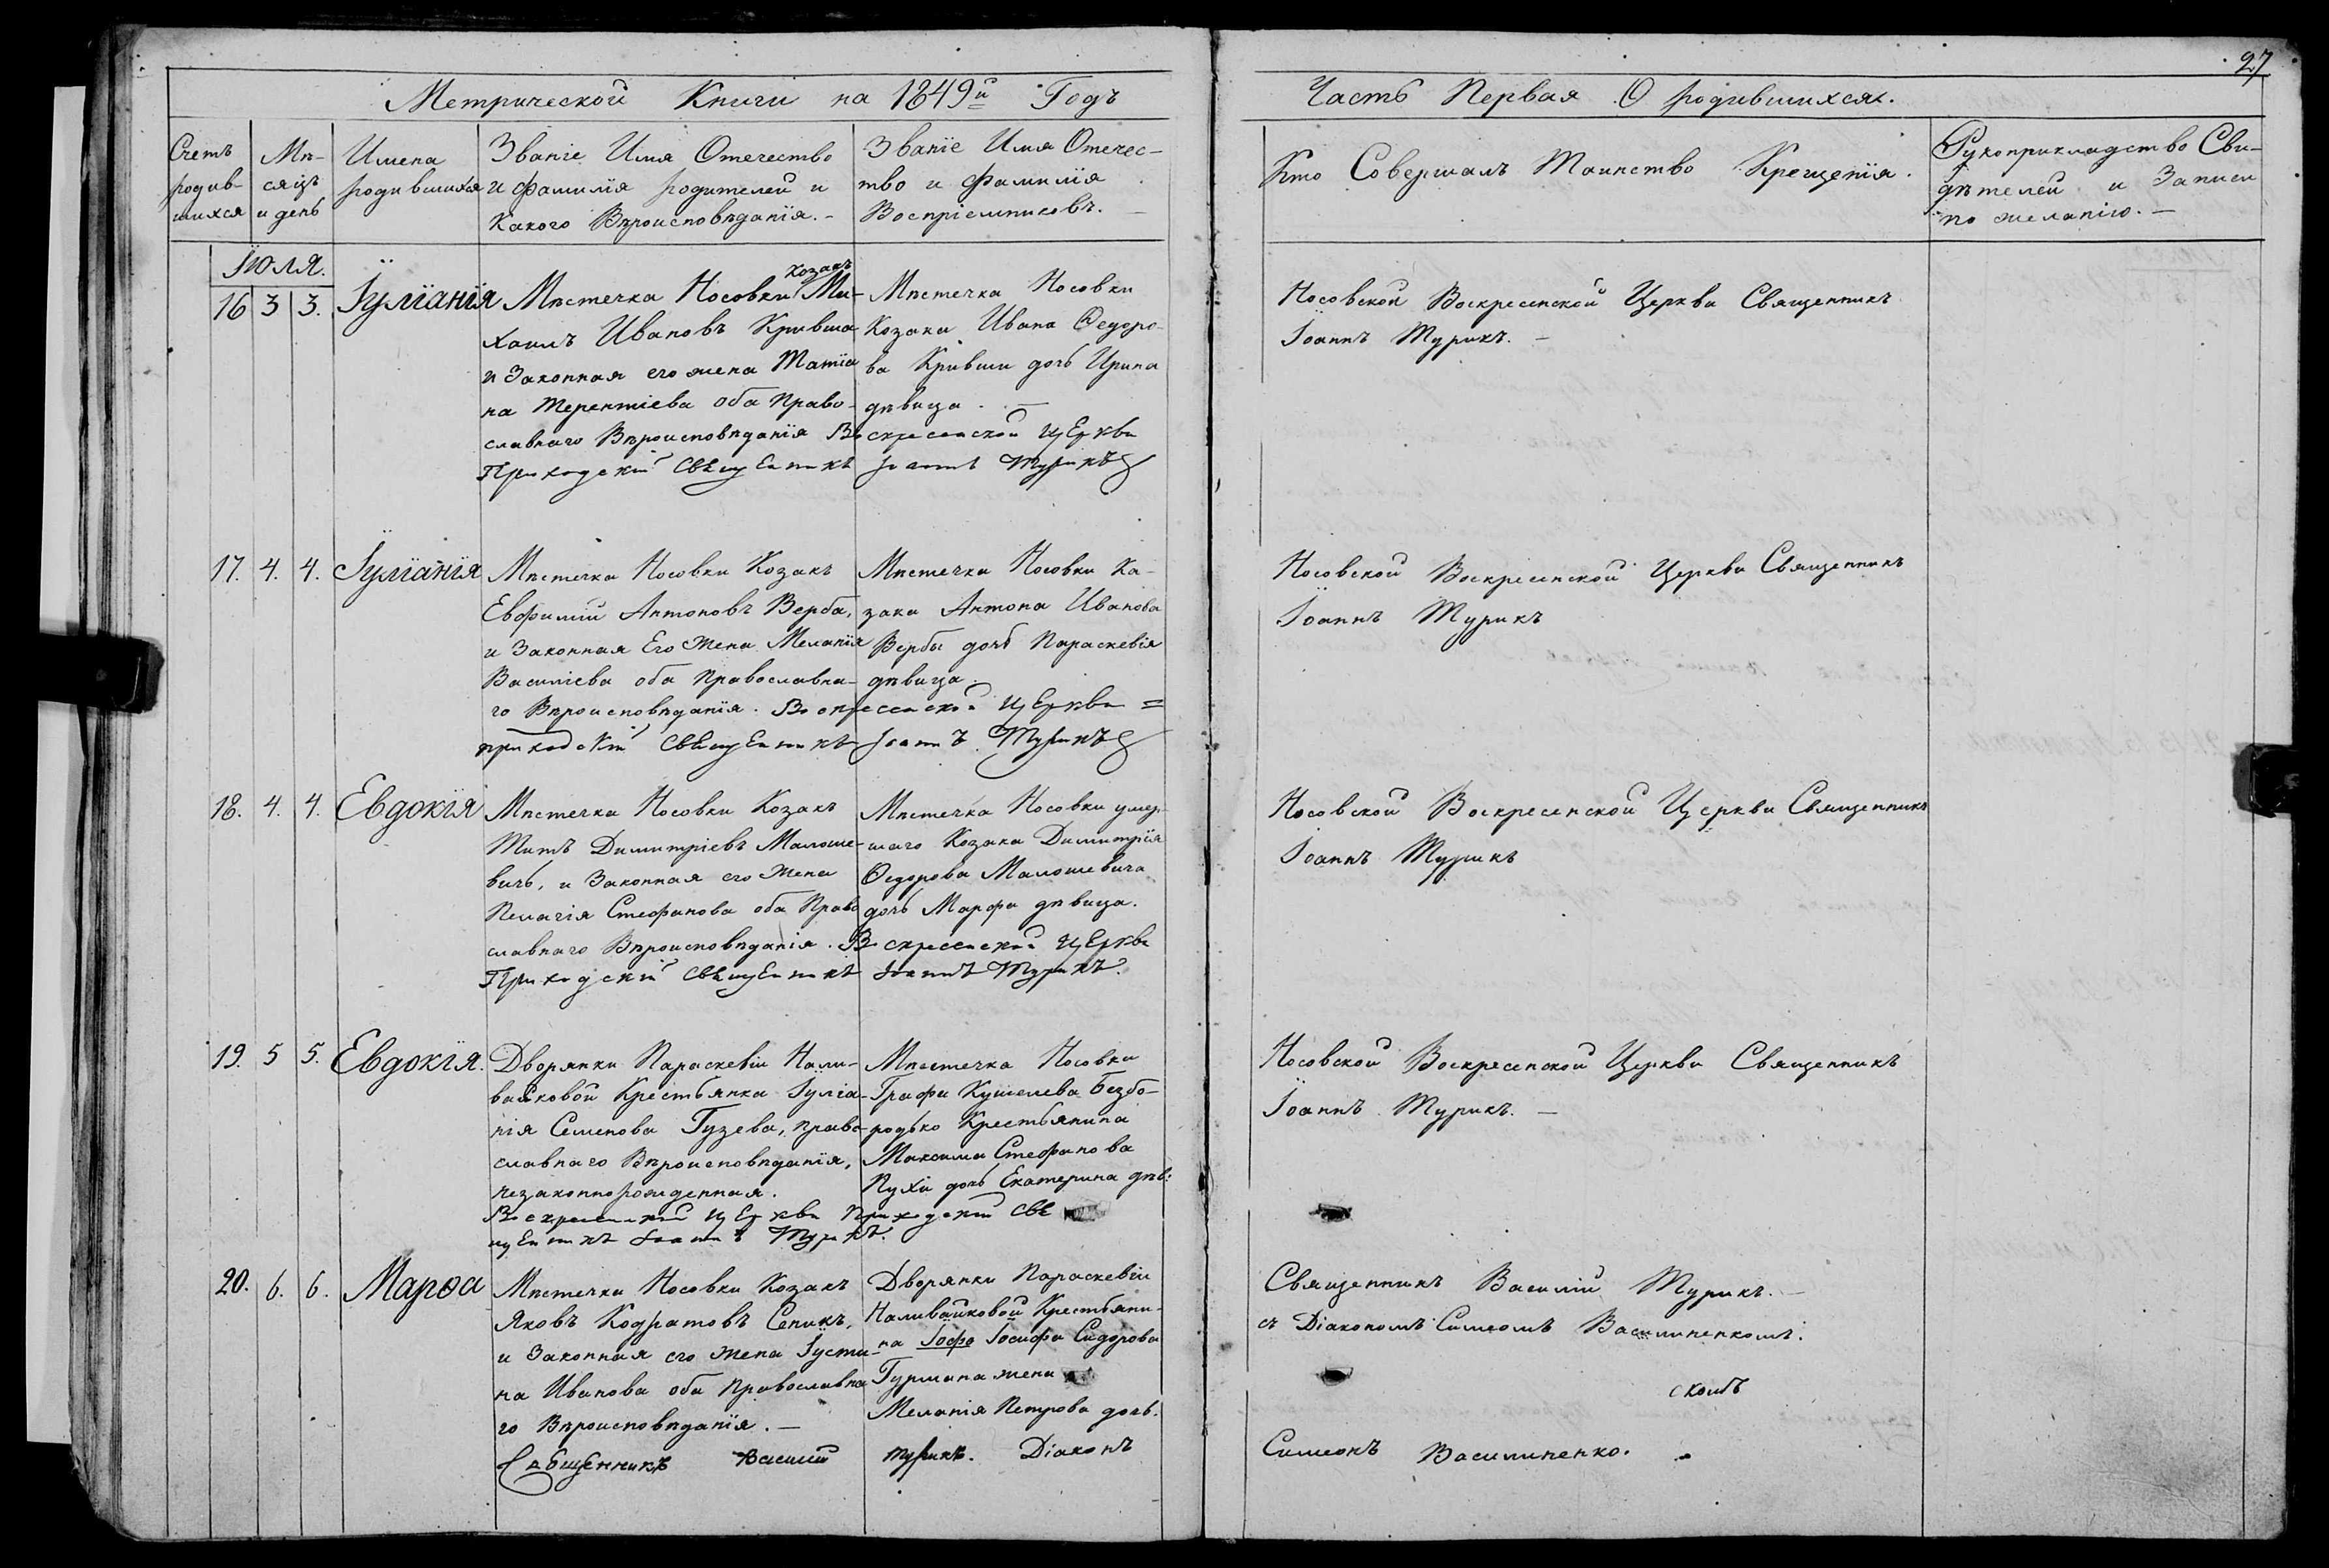 27
Метрической Книги на 1849й Годъ
Часть Первая О родившихся.
Счетъ родив-шихся
Мѣ-сяцъ и день
Имена родившихся
Званіе Имя Отечество
и фамилія родителей и
Какого Вѣроисповѣданія. -
Званіе Имя Отечес-
тво и Фамилія
Воспріемниковъ. -
Кто Совершалъ Таинство Крещенія.
Рукоприкладство Сви-
дѣтелей и Записи
по желанію. -
Іюля.
16 3 3. Іуліанія
Мѣстечка Носовки козакъ Ми-
хаилъ Ивановъ Кривша
и Законная его жена Татіа
на Терентіева оба Право-
славнаго Вѣроисповѣданія
Мѣстечка Носовки
Козака Ивана Ѳедоро-
ва Кривши дочь Ирина
дѣвица. -
Воскресенской Церкви
Приходскій Свѣщенникъ Іоаннъ Турикъ
Носовской Воскресенской Церкви Священникъ
Іоаннъ Турикъ. -
17. 4. 4. Іуліанія
Мѣстечка Носовки Козакъ
Евфимій Антоновъ Верба,
и Законная Его Жена Меланія
Василіева оба Православна-
го Вѣроисповѣданія.
Мѣстечка Носовки Ка-
зака Антона Иванова
Вербы дочь Параскевія
дѣвица.
Воскресенской Церкви =
приходскій Свѣщенникъ Іоаннъ Турикъ
Носовской Воскресенской Церкви Священникъ
Іоаннъ Турикъ
18. 4. 4. Евдокія
Мѣстечка Носовки Козакъ
Титъ Димитріевъ Малоше-
вичь, и Законная его Жена
Пелагія Стефанова оба Право
славнаго Вѣроисповѣданія.
Мѣстечка Носовки умер-
шаго Козака Димитрія
Ѳедорова Малошевича
дочь Марфа дѣвица.
Воскресенской Церкви
Приходскій Свѣщенникъ Іоаннъ Турикъ.
Носовской Воскресенской Церкви Священникъ
Іоаннъ Турикъ
19. 5 5. Евдокія.
Дворянки Параскевіи Нали-
вайковой Крестьянка Іуліа-
нія Семенова Гузева, право-
славнаго Вѣроисповѣданія,
незаконнорожденная.
Мѣстечка Носовки
Графа Кушелева Безбо-
родько Крестьянина
Максима Стефанова
Пухи дочь Екатерина дѣв:
Воскресенской Церкви Приходскій Свѣ
щенникъ Іоаннъ Турикъ.
Носовской Воскресенской Церкви Священникъ
Іоаннъ Турикъ. -
20. 6. 6. Марѳа
Мѣстечка Носовки Козакъ
Яковъ Кодратовъ Сеникъ,
и Законная его Жена Іусти-
на Иванова оба Православна
го Вѣроисповѣданія. -
Дворянки Параскевіи
Наливайковой Крестьяни-
на Іофо Іосифа Сидорова
Гурмана жена
Меланія Петрова дочь.
Священникъ Василій Турикъ. -
съ Діакономъ Симеомъ Василиненкомъ.
скомъ
Свѣщенникъ Василій Турикъ. Діаконъ
Симеонъ Василиненко.